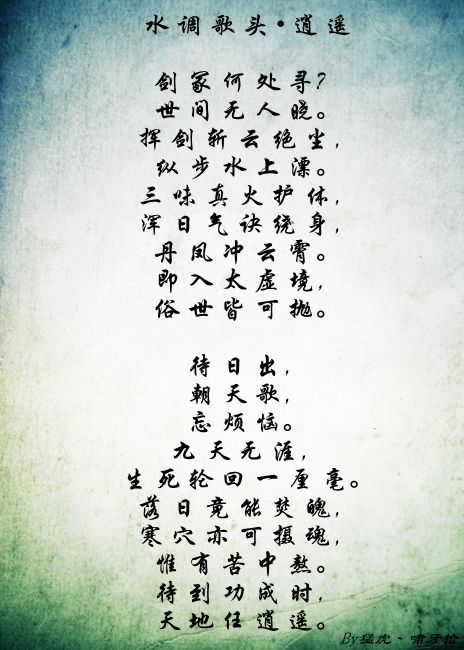 水调歌头·逍遥
剑冢何处寻？
世间无人晓。
挥剑斩云绝尘，
纵步水上漂。
三味真火护体，
浑日气诀绕身，
丹凤冲云霄。
即入太虚境，
俗世皆可抛。
待日出，
朝天歌，
忘烦恼。
九天无涯，
生死轮回一厘毫。
落日竟能焚魄，
寒穴亦可摄魂，
惟有苦中熬。
待到功成时，
天地任逍遥。
By猛虎-啸牙枪